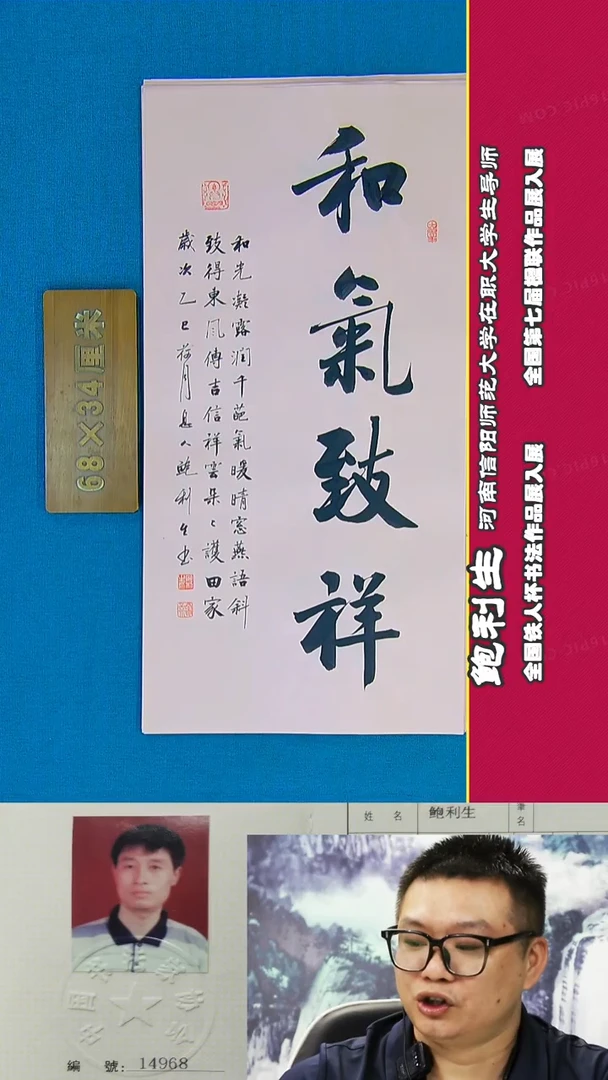 和氣致祥
和光凝露潤千葩氣暖晴窓燕語斜
致得東風傳吉信祥雲朵々護田家
歲次乙巳荷月
鮑利生書
68×34厘米
鲍利生
河南信阳师范大学在职大学生导师
全国铁人杯书法作品展入展
全国第七届楹联作品展入展
姓 名
鲍利生
筆名
編 號:
14968